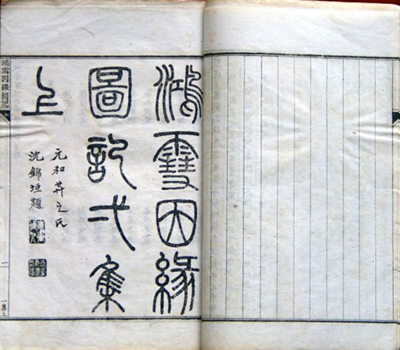 鴻雪因緣
圖記弍集
上
元和之氏
沈錦垣題
鴻雪因緣圖記